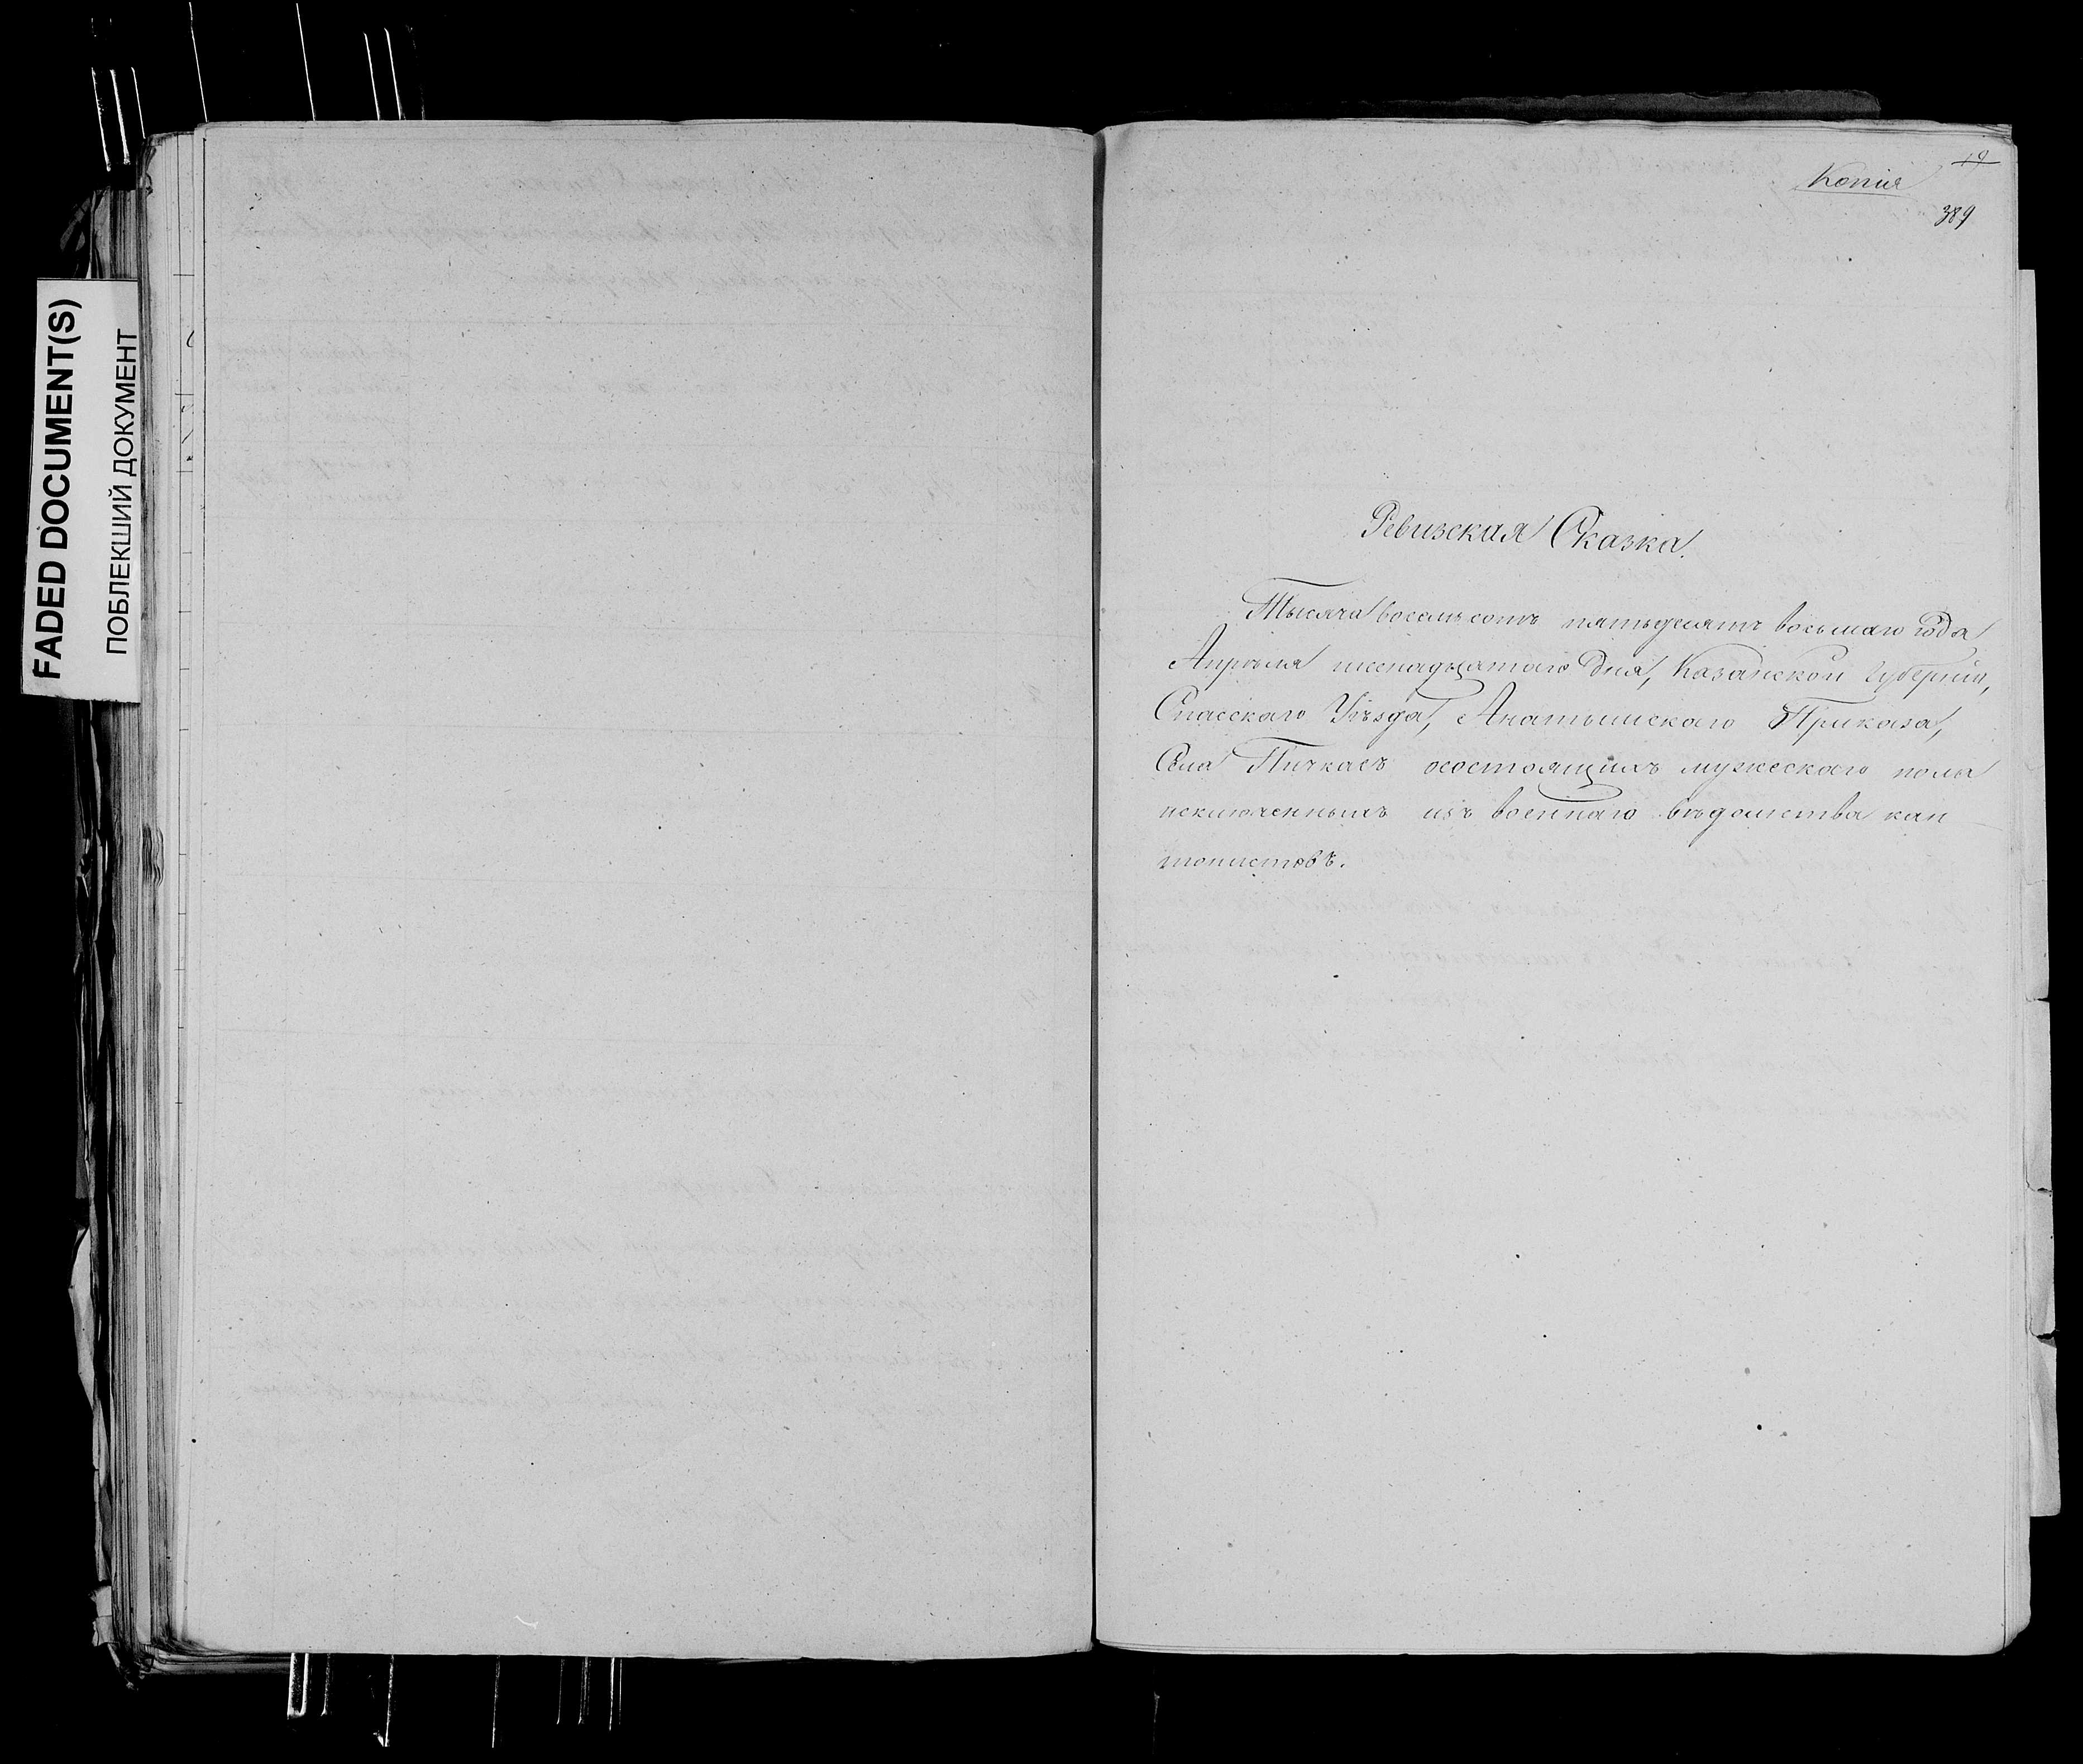 FADED DOCUMENT(S)
ПОБЛЕКШИЙ ДОКУМЕНТ
19
Копия
389
Ревизская Сказка.
Тысяча восемь сотъ пятьдесятъ восьмаго года
Апрѣля шеснадцатаго дня, Казанской Губерніи,
Спасскаго Уѣзда, Анатышскаго Приказа,
Села Пичкасъ о состоящихъ мужескаго пола
исключенныхъ изъ военнаго вѣдомства кан
тонистовъ.